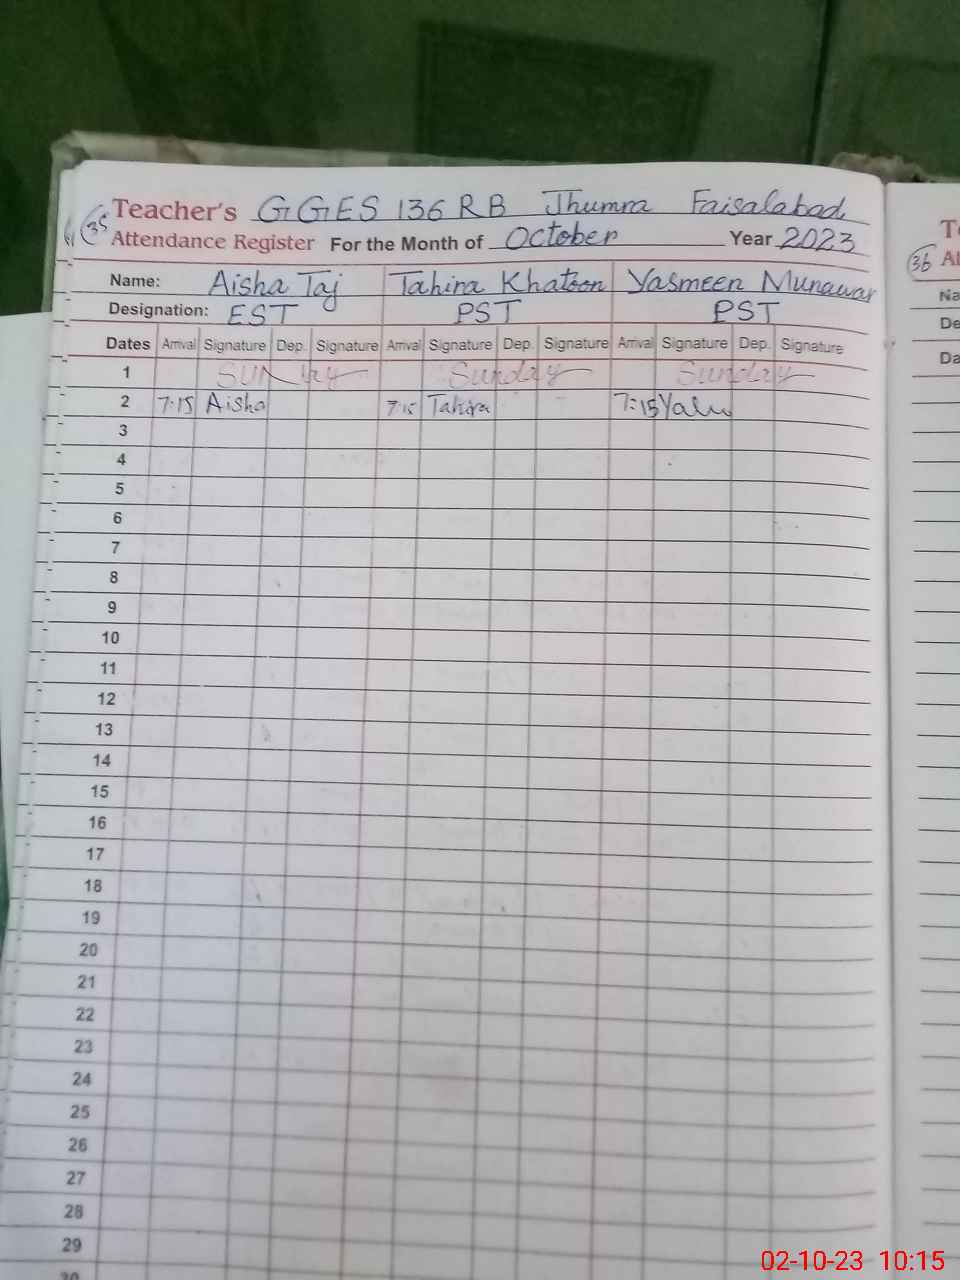 Teacher's GGES 136 RB Jhumra Faisalabad
35 Attendance Register For the Month of October Year 2023
Name: Aisha Taj Tahira Khatoon Yasmeen Munawar
Designation: EST PST PST
Dates Arrival Signature Dep. Signature Arrival Signature Dep. Signature Arrival Signature Dep. Signature
1 Sunday Sunday
2 7:15 Aisha 7:15 Tahira 7:15
3
4
5
6
7
8
9
10
11
12
13
14
15
16
17
18
19
20
21
22
23
24
25
26
27
28
29
30
36
Na
De
Da
02-10-23 10:15